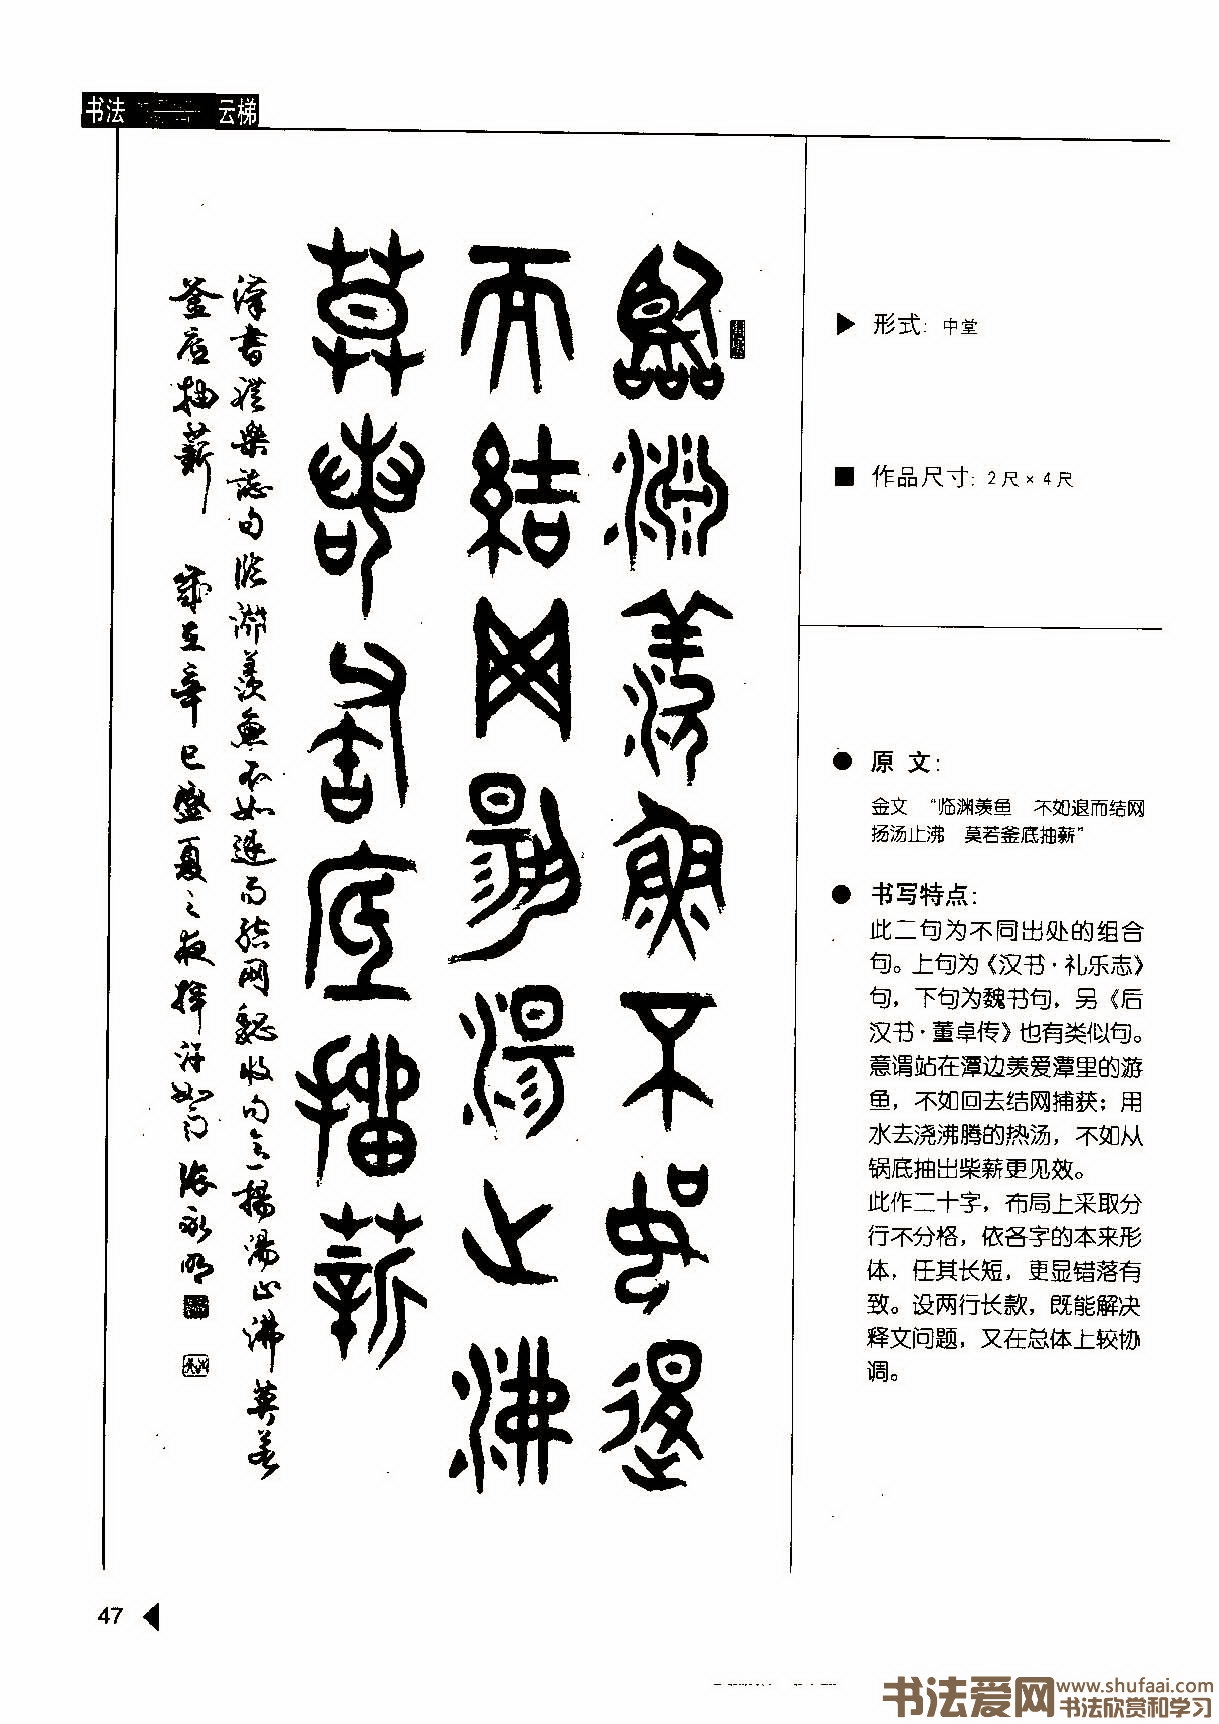 书法 云梯
臨淵羨魚不如退
而結网揚湯止沸
莫若釜底抽薪
漢書禮樂志句臨淵羨魚不如退而結網魏收句意揚湯止沸莫若
釜底抽薪 歲在辛巳盛夏之夜揮汗如雨 張永明
▶ 形式: 中堂
■ 作品尺寸: 2尺×4尺
● 原 文:
金文 “临渊羡鱼 不如退而结网
扬汤止沸 莫若釜底抽薪”
● 书写特点:
此二句为不同出处的组合
句。上句为《汉书·礼乐志》
句，下句为魏书句，另《后
汉书·董卓传》也有类似句。
意谓站在潭边羡爱潭里的游
鱼，不如回去结网捕获；用
水去浇沸腾的热汤，不如从
锅底抽出柴薪更见效。
此作二十字，布局上采取分
行不分格，依各字的本来形
体，任其长短，更显错落有
致。设两行长款，既能解决
释文问题，又在总体上较协
调。
47
书法爱网 www.shufaai.com
书法欣赏和学习